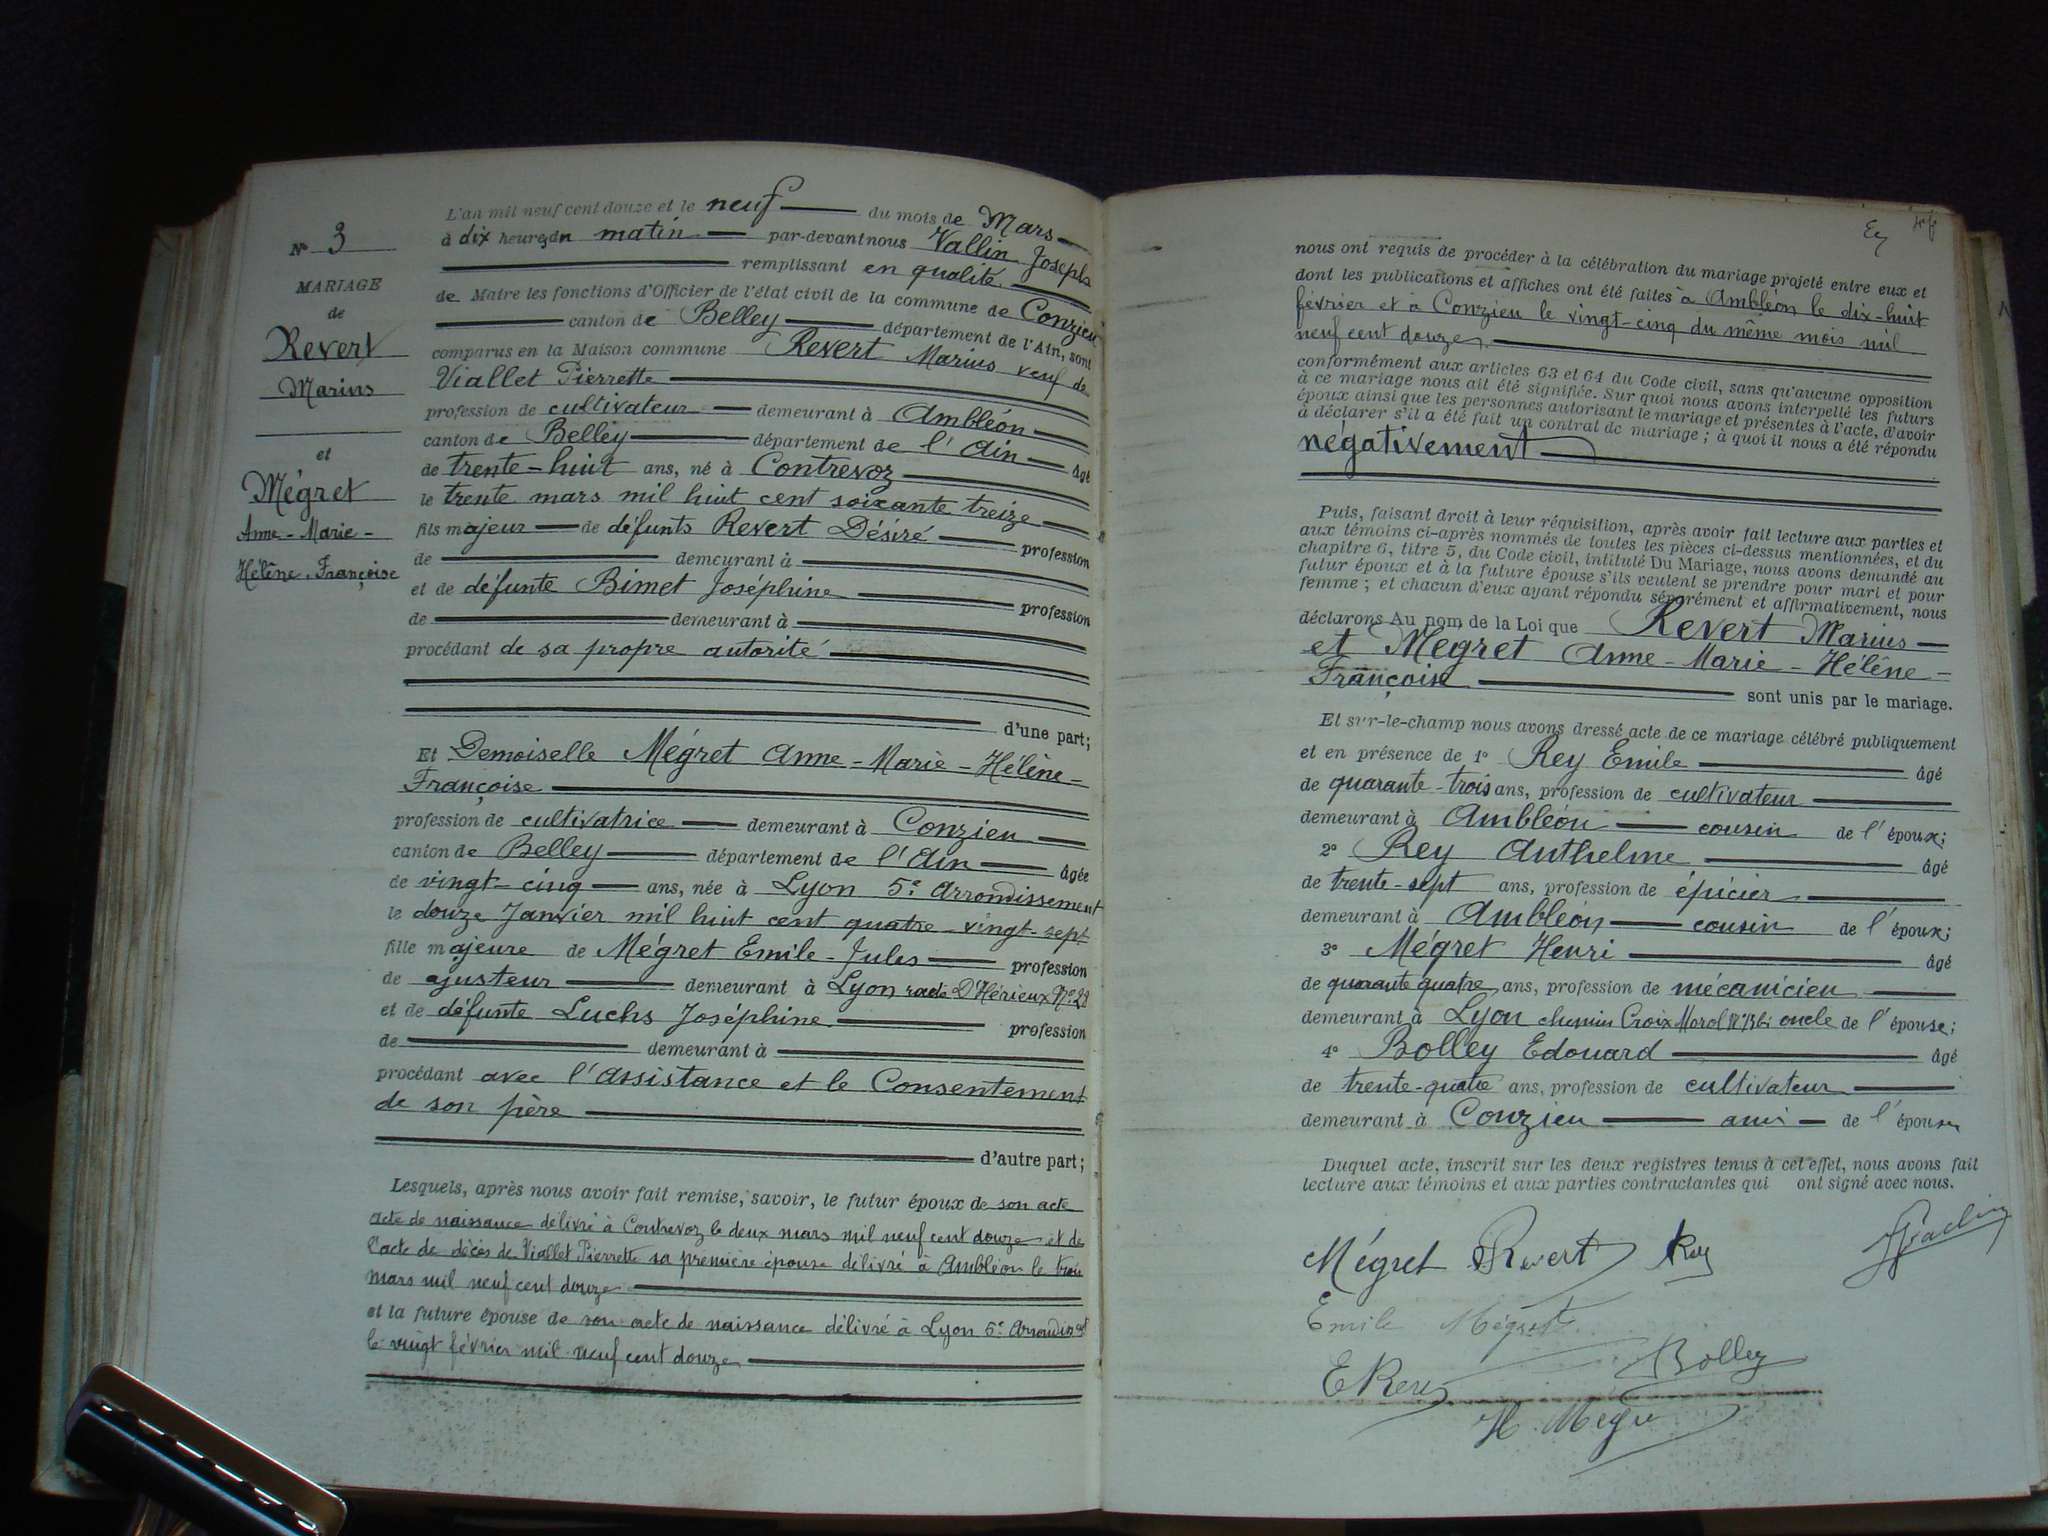 N° 3
MARIAGE
de
Revert
Marius
et
Mégret
Anne-Marie-
Hélène-Françoise
L'an mil neuf cent douze et le neuf du mois de Mars
à dix heures du matin par-devant nous Vallin Joseph
remplissant en qualité
de Maire les fonctions d'Officier de l'état civil de la commune de Conzieu
canton de Belley département de l'Ain, sont
comparus en la Maison commune Revert Marius veuf de
Viallet Pierrette
profession de cultivateur demeurant à Ambléon
canton de Belley département de l'Ain âgé
de trente-huit ans, né à Contrevoz
le trente mars mil huit cent soixante treize
fils majeur de défunts Revert Désiré profession
de demeurant à
et de défunte Bimet Joséphine profession
de demeurant à
procédant de sa propre autorité
d'une part;
Et Demoiselle Mégret Anne-Marie-Hélène-
Françoise
profession de cultivatrice demeurant à Conzieu
canton de Belley département de l'Ain âgée
de vingt-cinq ans, née à Lyon 5e Arrondissement
le douze Janvier mil huit cent quatre-vingt-sept
fille majeure de Mégret Emile-Jules profession
de ajusteur demeurant à Lyon D'Hérieux N° 28
et de défunte Luchs Joséphine profession
de demeurant à
procédant avec l'Assistance et le Consentement
de son père
d'autre part;
Lesquels, après nous avoir fait remise, savoir, le futur époux de son acte
acte de naissance délivré à Contrevoz le deux mars mil neuf cent douze et de
l'acte de décès de Viallet Pierrette sa première épouse délivré à Ambléon le trois
mars mil neuf cent douze
et la future épouse de son acte de naissance délivré à Lyon 5e
le vingt février mil neuf cent douze
nous ont requis de procéder à la célébration du mariage projeté entre eux et
dont les publications et affiches ont été faites à Ambléon le dix-huit
février et à Conzieu le vingt-cinq du même mois mil
neuf cent douze
conformément aux articles 63 et 64 du Code civil, sans qu'aucune opposition
à ce mariage nous ait été signifiée. Sur quoi nous avons interpellé les futurs
époux ainsi que les personnes autorisant le mariage et présentes à l'acte, d'avoir
à déclarer s'il a été fait un contrat de mariage; à quoi il nous a été répondu
négativement
Puis, faisant droit à leur réquisition, après avoir fait lecture aux parties et
aux témoins ci-après nommés de toutes les pièces ci-dessus mentionnées, et du
chapitre 6, titre 5, du Code civil, intitulé Du Mariage, nous avons demandé au
futur époux et à la future épouse s'ils veulent se prendre pour mari et pour
femme; et chacun d'eux ayant répondu séparément et affirmativement, nous
déclarons Au nom de la Loi que Revert Marius
et Mégret Anne-Marie-Hélène-
Françoise sont unis par le mariage.
Et sur-le-champ nous avons dressé acte de ce mariage célébré publiquement
et en présence de 1° Rey Emile âgé
de quarante-trois ans, profession de cultivateur
demeurant à Ambléon cousin de l'époux;
2° Rey Anthelme âgé
de trente-sept ans, profession de épicier
demeurant à Ambléon cousin de l'époux;
3° Mégret Henri âgé
de quarante quatre ans, profession de mécanicien
demeurant à Lyon chemin Croix Morel oncle de l'épouse;
4° Bolley Edouard âgé
de trente-quatre ans, profession de cultivateur
demeurant à Conzieu ami de l'époux
Duquel acte, inscrit sur les deux registres tenus à cet effet, nous avons fait
lecture aux témoins et aux parties contractantes qui ont signé avec nous.
Mégret Revert Rey
Emile Mégret
E Rey Bolley
H. Mégret